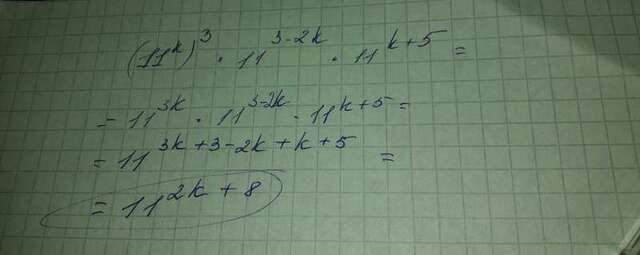 (11^k)^3 · 11^{3-2k} · 11^{k+5} =
= 11^{3k} · 11^{3-2k} · 11^{k+5} =
= 11^{3k+3-2k+k+5} =
= 11^{2k+8}